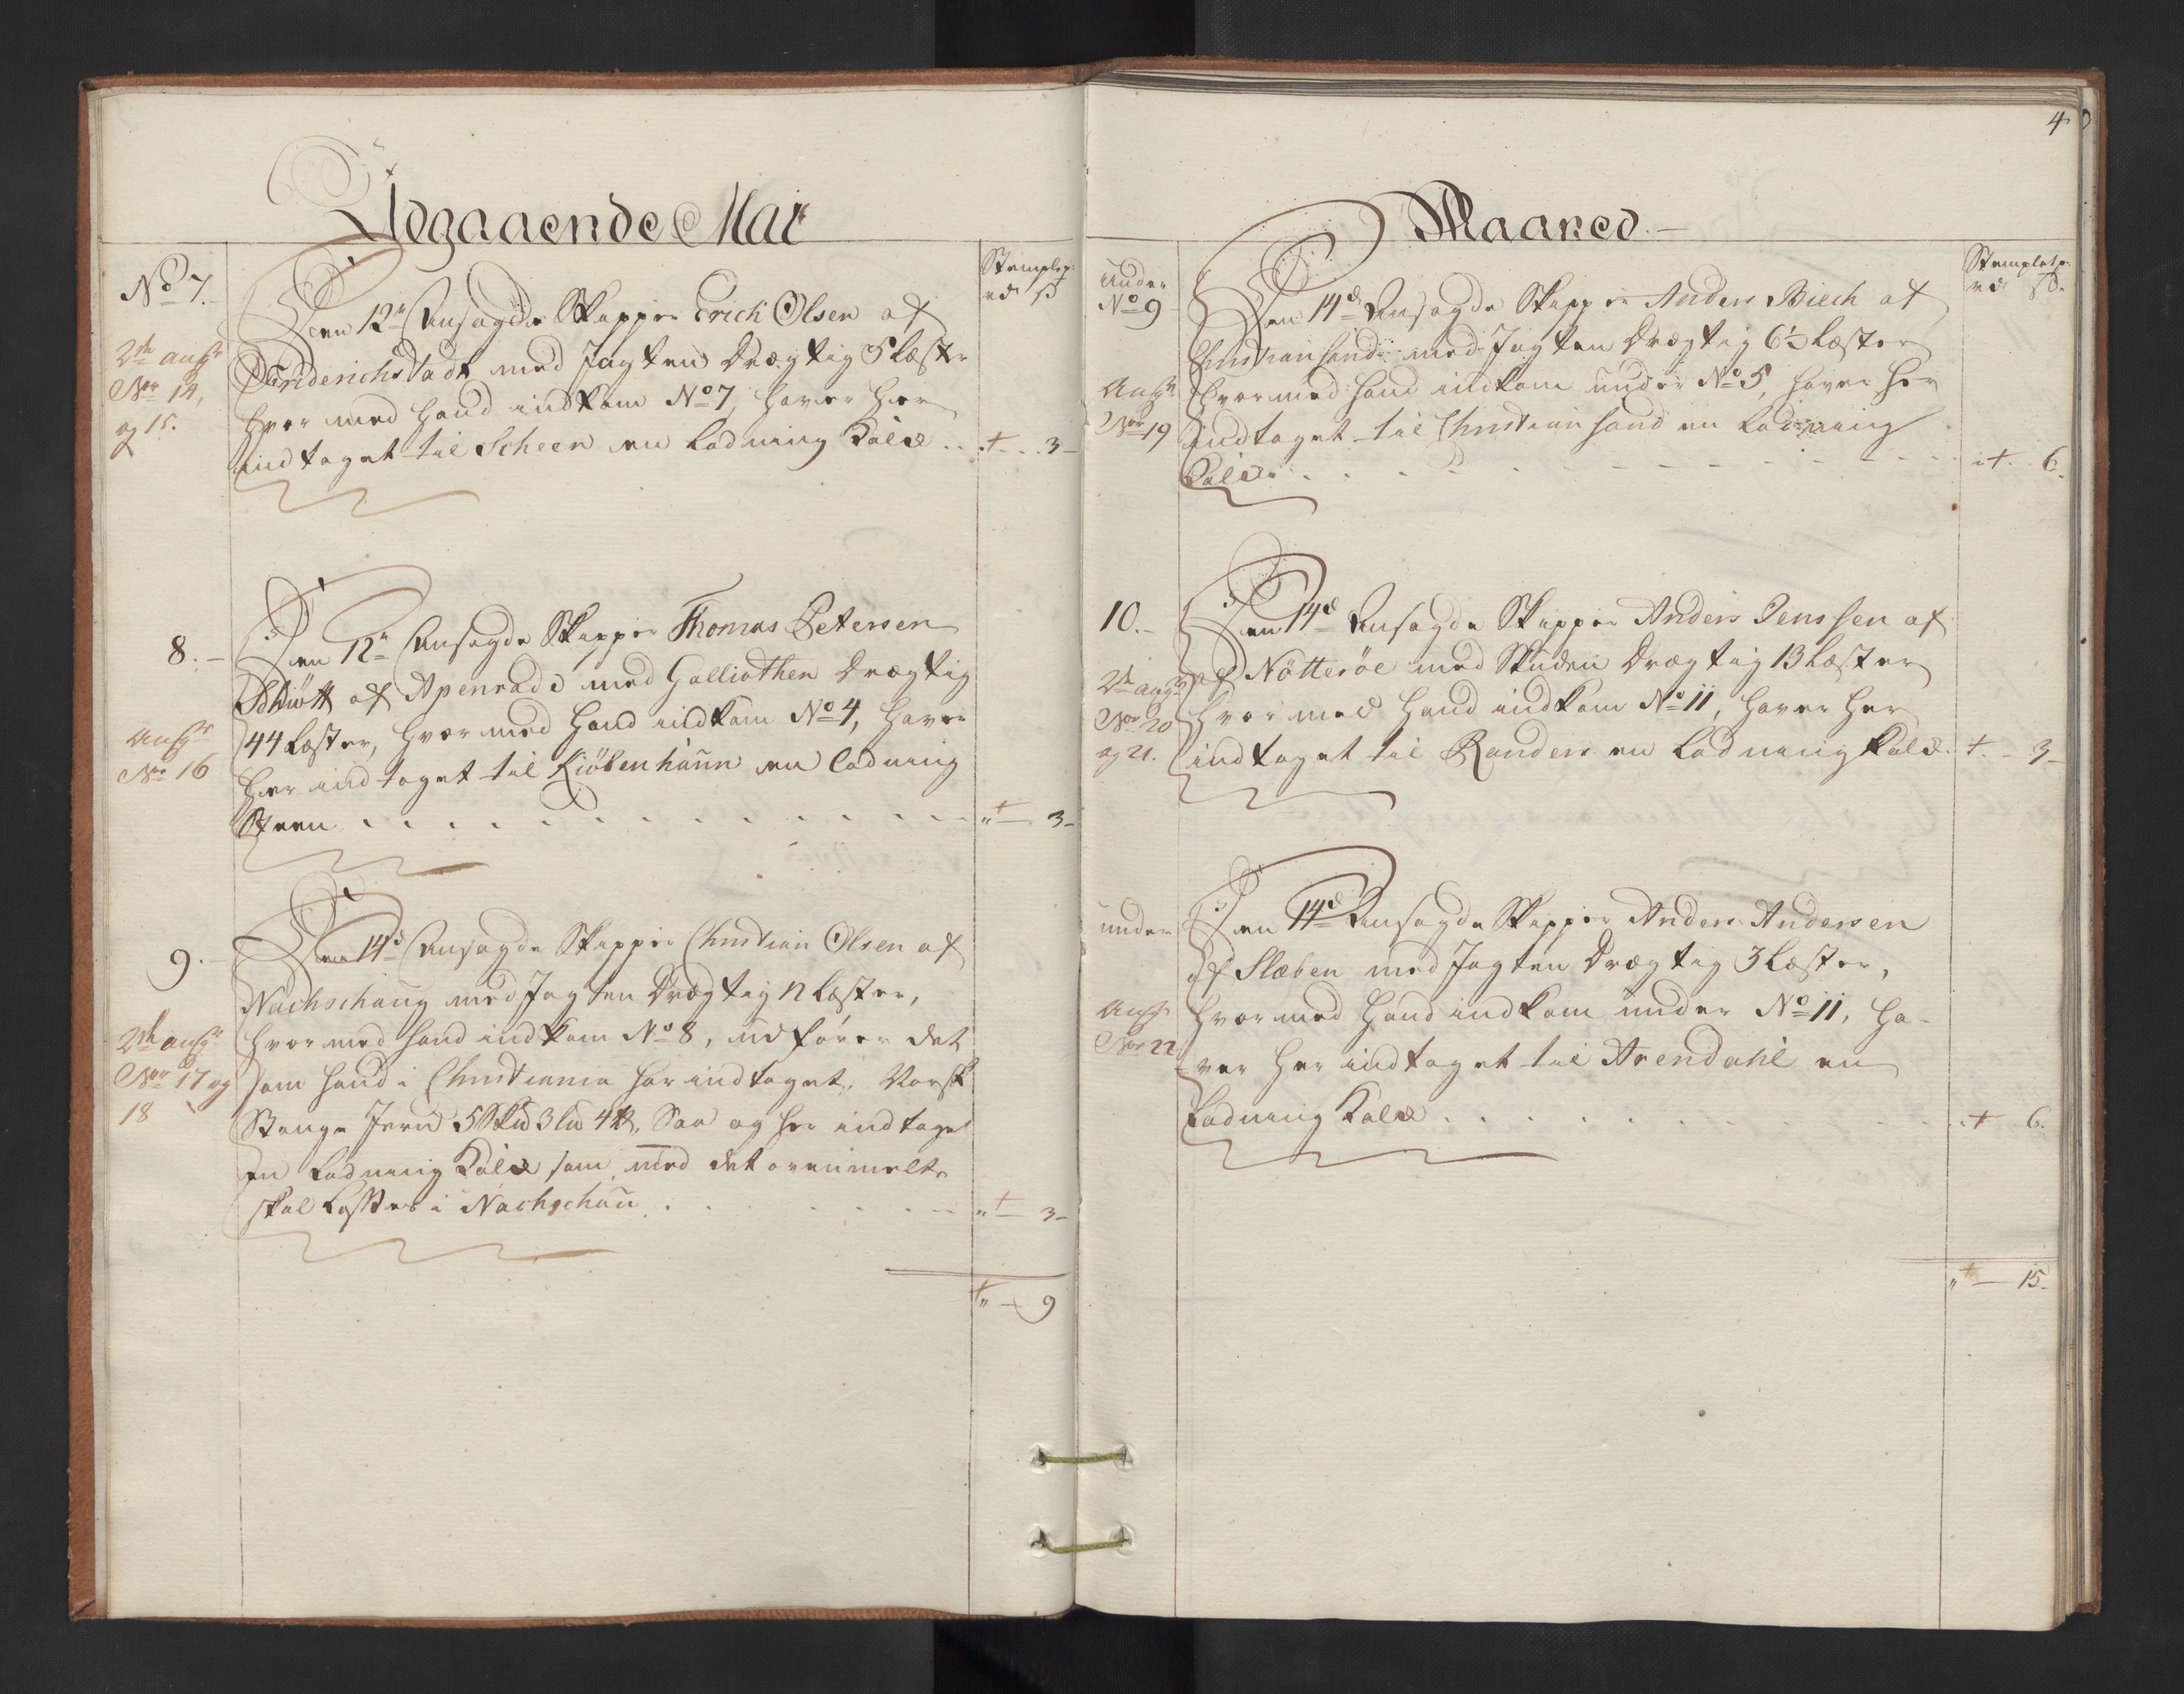 Udgaaende Mai
No 7.
Stemplep:
rd ß
Den 12te Ansagde Skipper Erich Olsen af
Friderichstadt med Jagten Drægtig 5 Læster
hvor med hand indkom No 7, haver her
indtaget til Scheen en Ladning Kalck .. + .. 3
2de
Nor 14,
og 15.
8.
Den 12te Ansagde Skipper Thomas Petersen
Schiøtt af Apenrade med Galliothen Drægtig
44 Læster, hvor med hand indkom No 4, haver
her indtaget til Kiöbenhaun en Ladning
Steen . . . . . . . . . . . . " + 3
Nor 16
9.
Den 14de Ansagde Skipper Christian Olsen af
Nachschaug med Jagten Drægtig 12 Læster,
hvor med hand indkom No 8, udfører det
som hand i Christiania har indtaget, Norsk
Stange Jern 5 Skd 3 Ld 4 ℔, Saa og her indtaget
En Ladning Kalck som med det ovenmelte
skal Losses i Nachschau . . . . . . . . " + 3
2de
Nor 17 og
18
" + 9
4
Maaned.
under
No 9
Stempletp:
rd ß
Den 14de Ansagde Skipper Anders Biech af
Christiansand med Jagten Drægtig 6½ Læster
hvormed hand indkom under No 5, haver her
indtaget til Christiansand en Ladning
Kalck . . . . . . . . . . . . + . 6.
Nor 19
10.
Den 14de Ansagde Skipper Anders Jenssen af
af Nötteröe med Skuden Drægtig 13 Læster
hvor med hand indkom No 11, haver her
indtaget til Randers en Ladning Kalck. + . 3
2de
Nor 20
og 21.
under
Den 14de Ansagde Skipper Anders Andersen
af Slæben med Jagten Drægtig 3 Læster,
hvor med hand indkom under No 11, ha-
ver her indtaget til Arendahl en
Ladning Kalck . . . . . . . . . . + 6.
Nor 22
" + 15